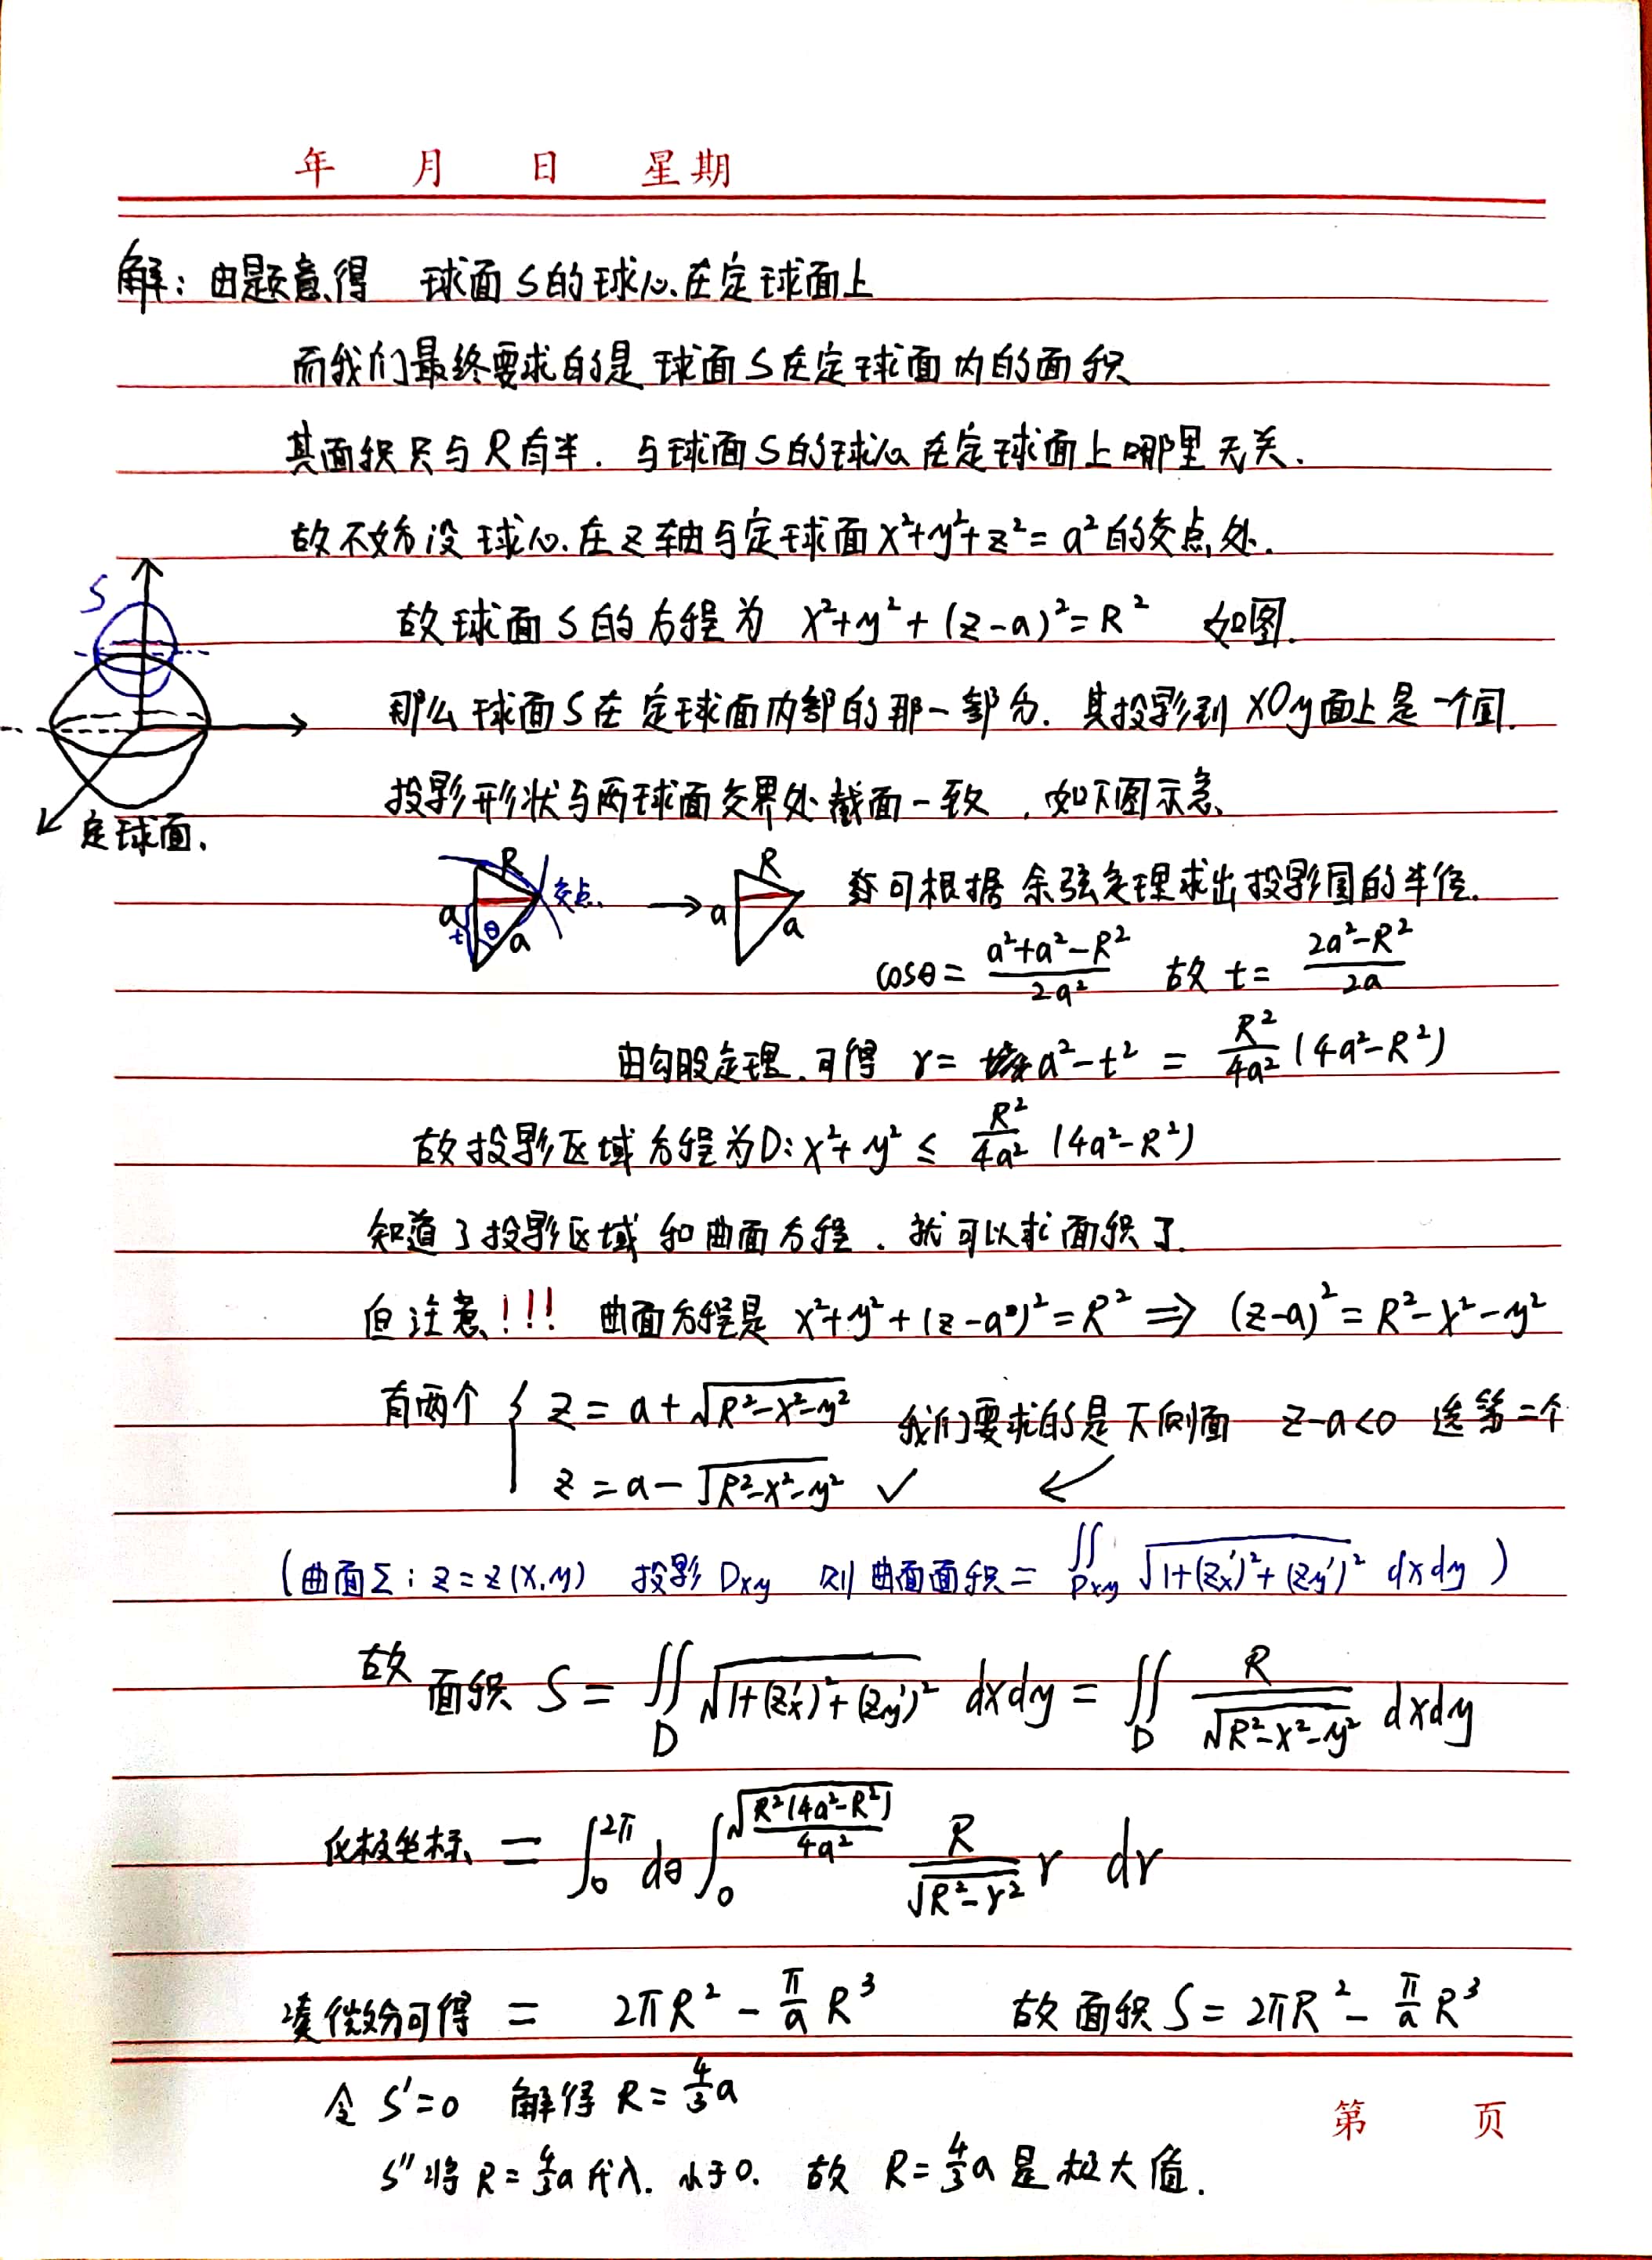 年 月 日 星期
解：由题意得 球面S的球心在定球面上
而我们最终要求的是球面S在定球面内的面积
其面积只与R有半．与球面S的球心在定球面上哪里无关．
故不妨设球心在z轴与定球面x²+y²+z²=a²的交点处．
故球面S的方程为 x²+y²+(z-a)²=R² 如图．
S
那么球面S在定球面内部的那一部分．其投影到xOy面上是一个圆．
投影形状与两球面交界处截面一致，如下图示意
定球面．
R a t θ a 交点 → R a a 可根据余弦定理求出投影圆的半径．
cosθ= (a²+a²-R²)/(2a²) 故 t= (2a²-R²)/(2a)
由勾股定理．可得 r= a²-t² = R²/(4a²) (4a²-R²)
故投影区域方程为D: x²+y² ≤ R²/(4a²) (4a²-R²)
知道了投影区域和曲面方程．就可以求面积了．
但注意!!! 曲面方程是 x²+y²+(z-a)²=R² ⇒ (z-a)²=R²-x²-y²
有两个 { z=a+√(R²-x²-y²) 我们要求的是下侧面 z-a<0 选第二个
z=a-√(R²-x²-y²) ✓ ↙
(曲面Σ: z=z(x,y) 投影Dxy 则曲面面积= ∬Dxy √(1+(z'x)²+(z'y)²) dxdy )
故面积 S = ∬D √(1+(z'x)²+(z'y)²) dxdy = ∬D R/√(R²-x²-y²) dxdy
化极坐标 = ∫₀^2π dθ ∫₀^√(R²(4a²-R²)/(4a²)) R/√(R²-r²) r dr
凑微分可得 = 2πR² - π/a R³ 故面积 S = 2πR² - π/a R³
令 S'=0 解得 R= 4/3 a
S''将 R= 4/3 a代入．小于0． 故 R= 4/3 a 是极大值．
第 页